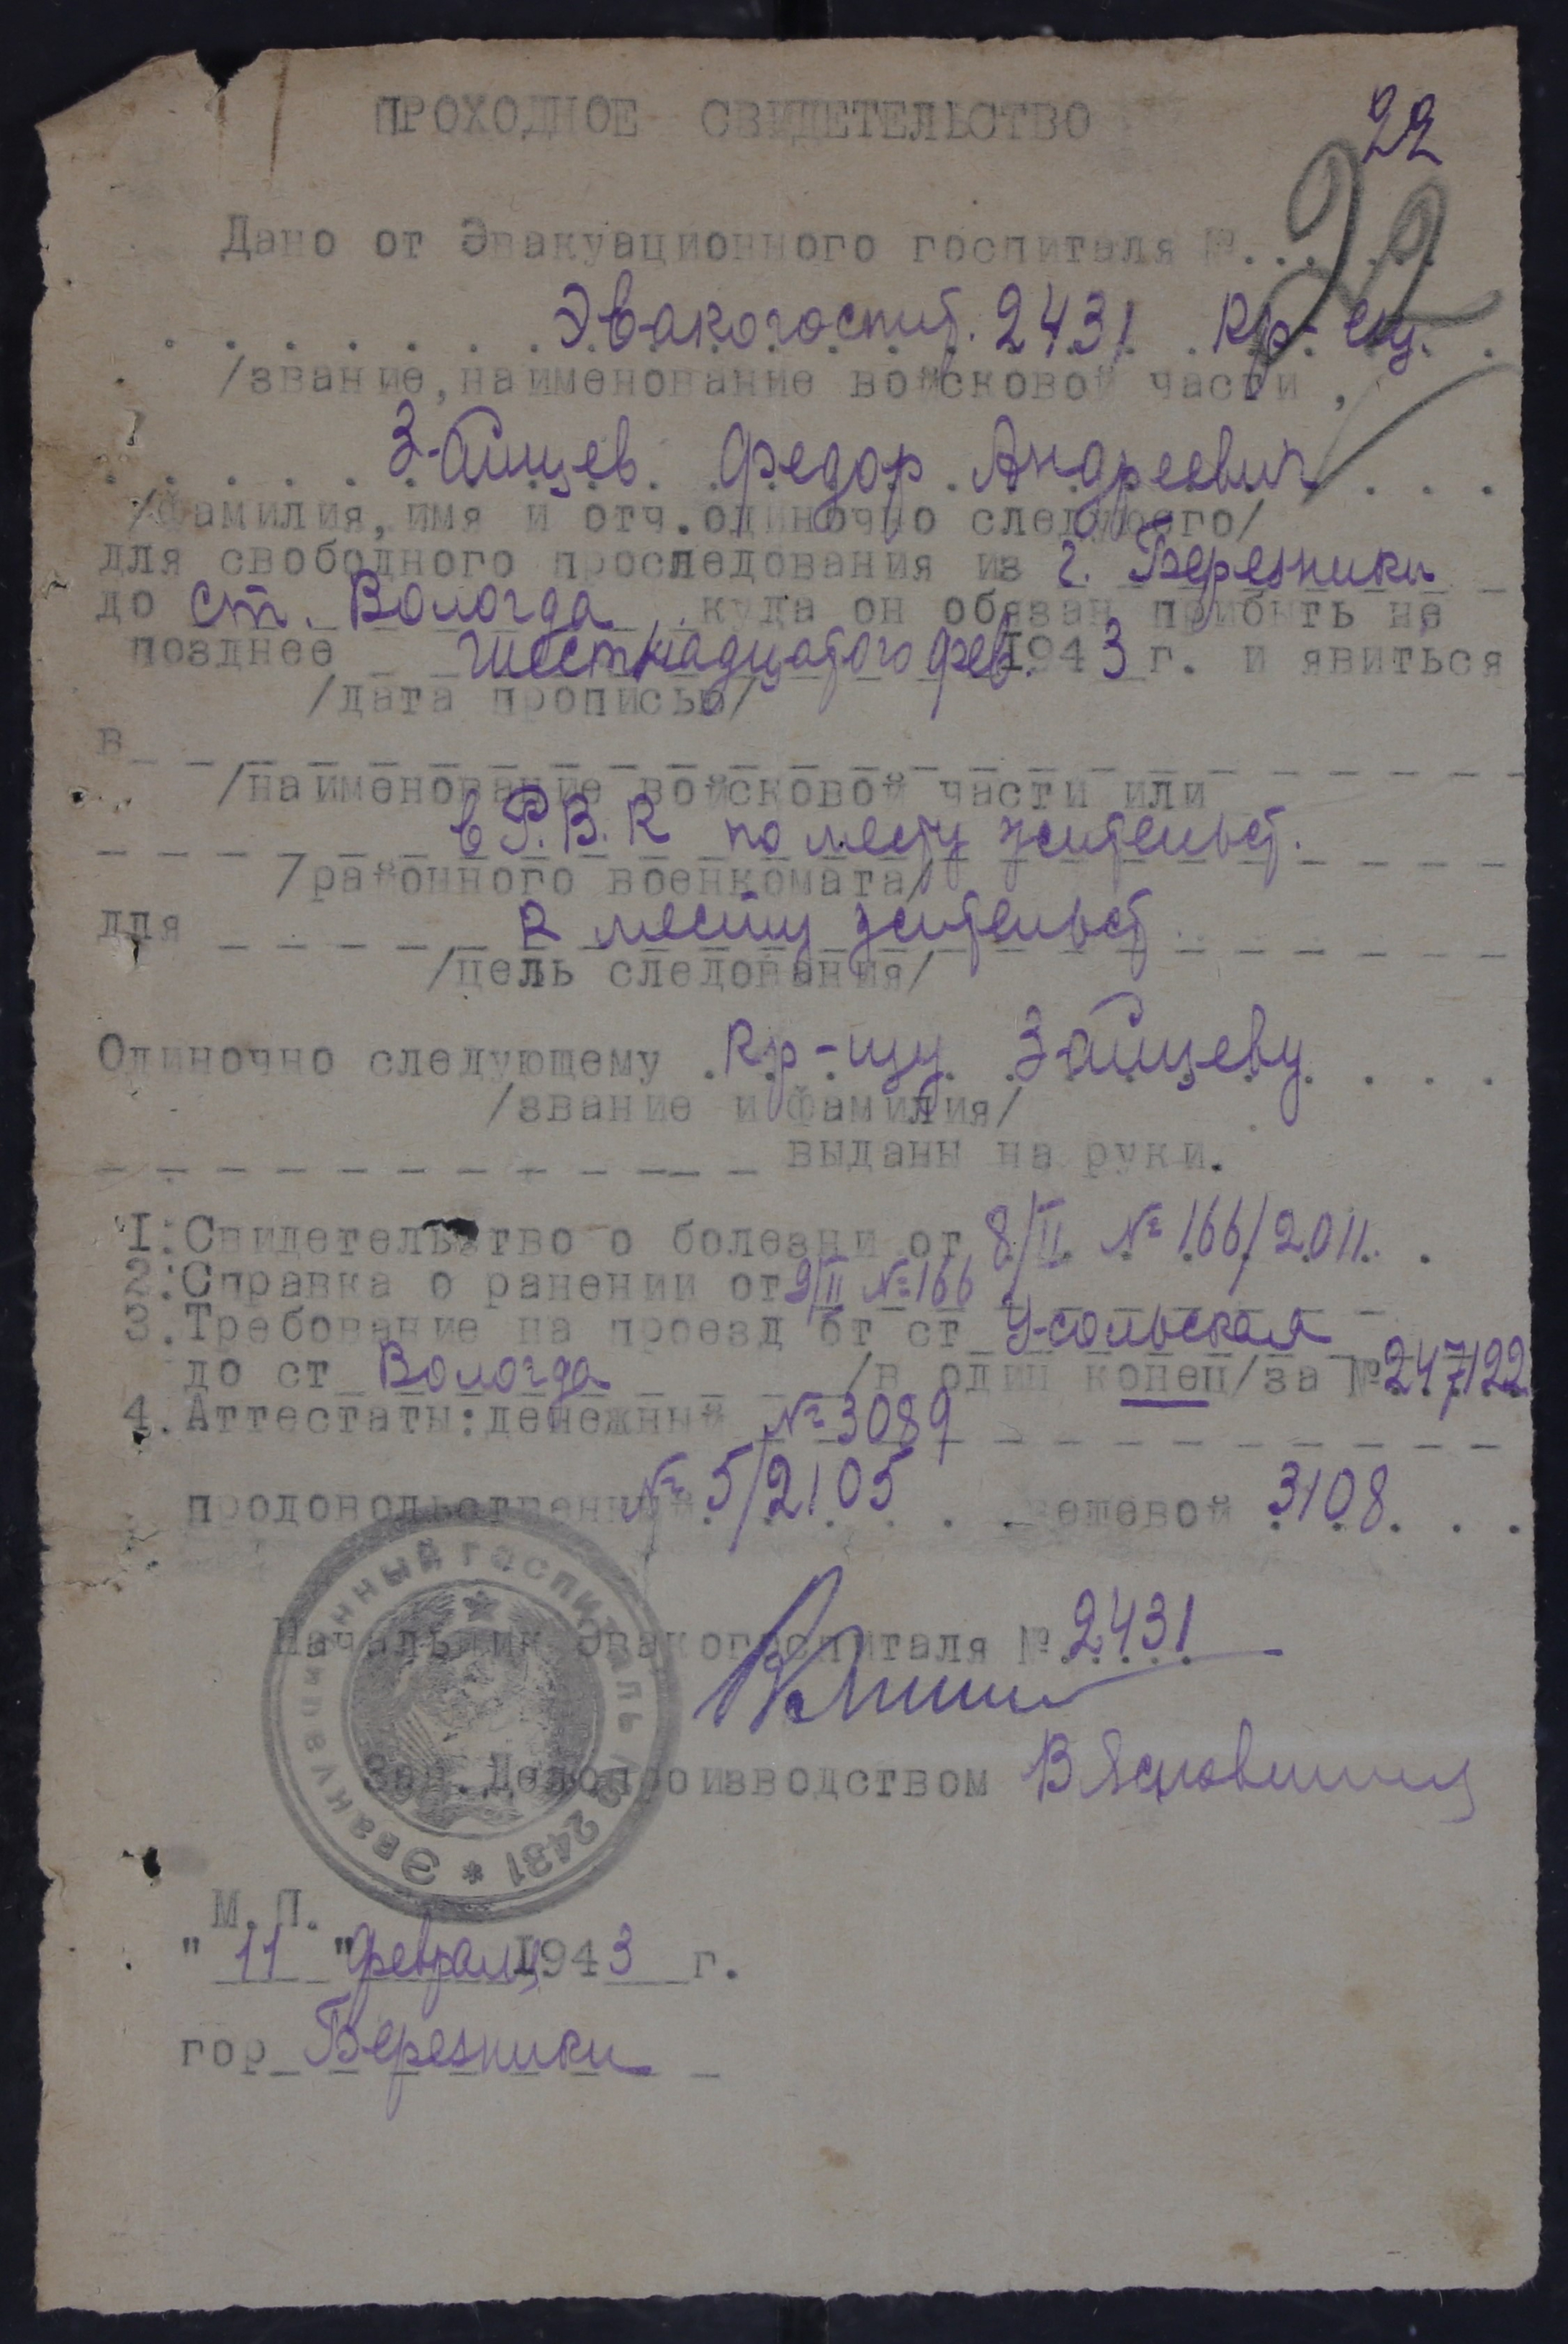 ПРОХОДНОЕ СВИДЕТЕЛЬСТВО
22
22
Дано от Эвакуационного госпиталя №. . . . . .
Эвакогоспит. 2431 Кр-ец.
/звание, наименование войсковой части,
Зайцев Федор Андреевич
/Фамилия, имя и отч. одиночно следующего/
для свободного проследования из г. Березники
до ст. Вологда куда он обязан прибыть не
позднее шестнадцатого фев. 1943 г. и явиться
/дата прописью/
в
/наименование войсковой части или
в Р.В.К по месту жительст.
/районного военкомата/
для к месту жительст
/цель следования/
Одиночно следующему Кр-цу Зайцеву
/звание и фамилия/
выданы на руки.
1. Свидетельство о болезни от 8/II № 166/2011.
2. Справка о ранении от 9/II № 166
3. Требование на проезд от ст Усольская
до ст Вологда /в один конец/за № 247122
4. Аттестаты: денежный № 3089
продовольственный № 5/2105 вещевой 3108
Начальник Эвакогоспиталя № 2431
Зав. Делопроизводством
Эвакуационный госпиталь № 2431 *
М. П.
" 11 " февраля 1943 г.
гор Березники